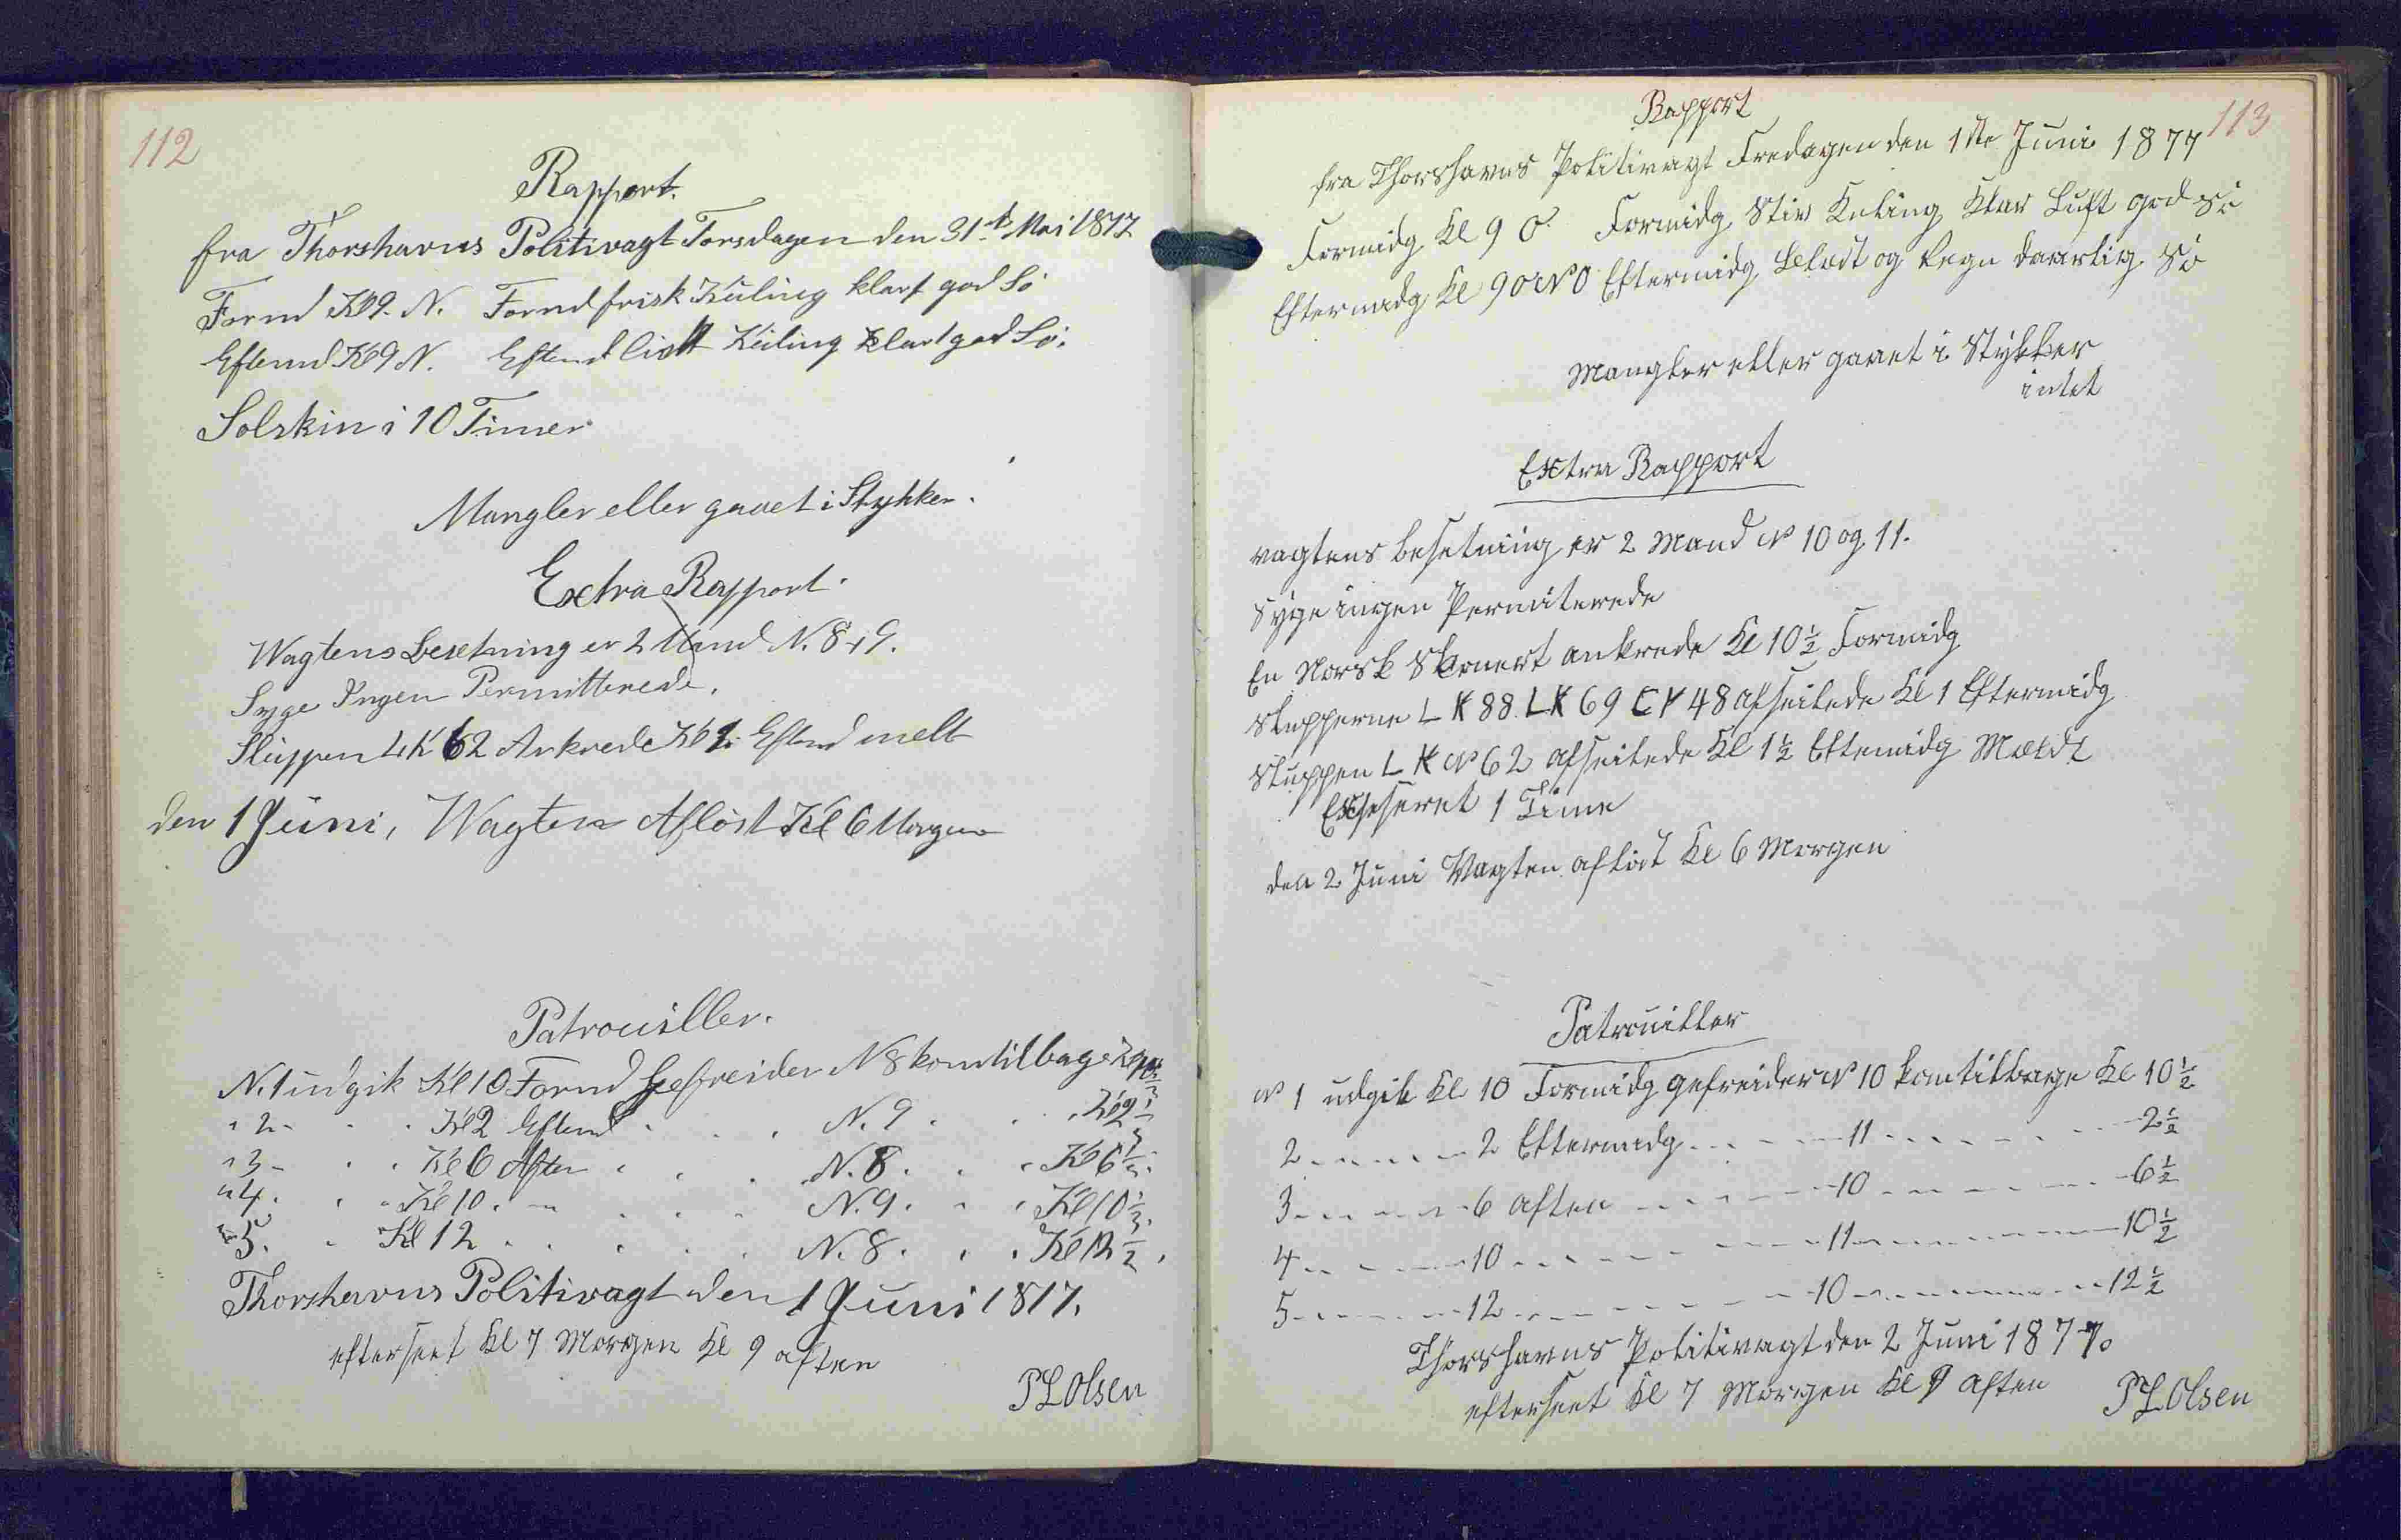 112
Rapport.
fra Thorshavns Politivagt Torsdagen den 31te Mai 1877
Formd Kl 9. N. Formd frisk Kuling klart god Sö
Eftermd Kl 9 N. Eftermd Kuling klart god Sö.
Solskin i 10 Timer
Mangler eller gaaet i Stykker.
Extra Rapport.
Wagtens Besetning er 2 Mand N. 8 + 9.
Syge Ingen Permitterede.
Sluppen LK 62 Ankrede Kl 1. Eftmd melt
den 1 Juni, Wagten Aflöst Kl 6 Morgen
Patrouiller.
N. 1 udgik Kl 10 Formd Gefreider N 8 kom tilbage Kl 10½
" 2 - . . Kl 2 Eftmd . . . N. 9 . . . Kl 2½
" 3 - . . Kl 6 Aften . . . N. 8 . . . Kl 6½.
" 4. . . Kl 10. - . . . N. 9. . . Kl 10½.
" 5. . Kl 12 . . . . N. 8. . . Kl 12½.
Thorshavns Politivagt den 1 Juni 1877.
efterseet Kl 7 Morgen Kl 9 aften
P L Olsen
113
Rapport
fra Thorshavns Politivagt Fredagen den 1ste Juni 1877
Formidg Kl 9 O. Formidg Stiv Kuling Klar Luft god Sö
Eftermidg Kl 9 ONO Eftermidg og Regn daarlig Sö
Mangler eller gaaet i Stykker
intet
Extra Rapport
vagtens besetning er 2 Mand N 10 og 11.
Syge ingen Permiterede
En Norsk Skonert ankrede Kl 10½ Formidg
Slupperne LK 88. LK 69 48 afseilede Kl 1 Eftermidg
Sluppen LK N 62 afseilede Kl 1½ Eftemidg Mældt
Exseseret 1 Time
den 2 Juni Vagten aflöst Kl 6 Morgen
Patrouiller
N 1 udgik Kl 10 Formidg gefreider N 10 kom tilbage Kl 10½
2 - - - - - 2 Eftermidg - - - - 11 - - - - - - 2½
3 - - - - - 6 aften - - - - - 10 - - - - - - 6½
4 - - - - - 10 - - - - - - 11 - - - - - - 10½
5 - - - - - 12 - - - - - - 10 - - - - - - 12½
Thorshavns Politivagt den 2 Juni 1877.
efterseet Kl 7 Morgen Kl 9 aften
P L Olsen